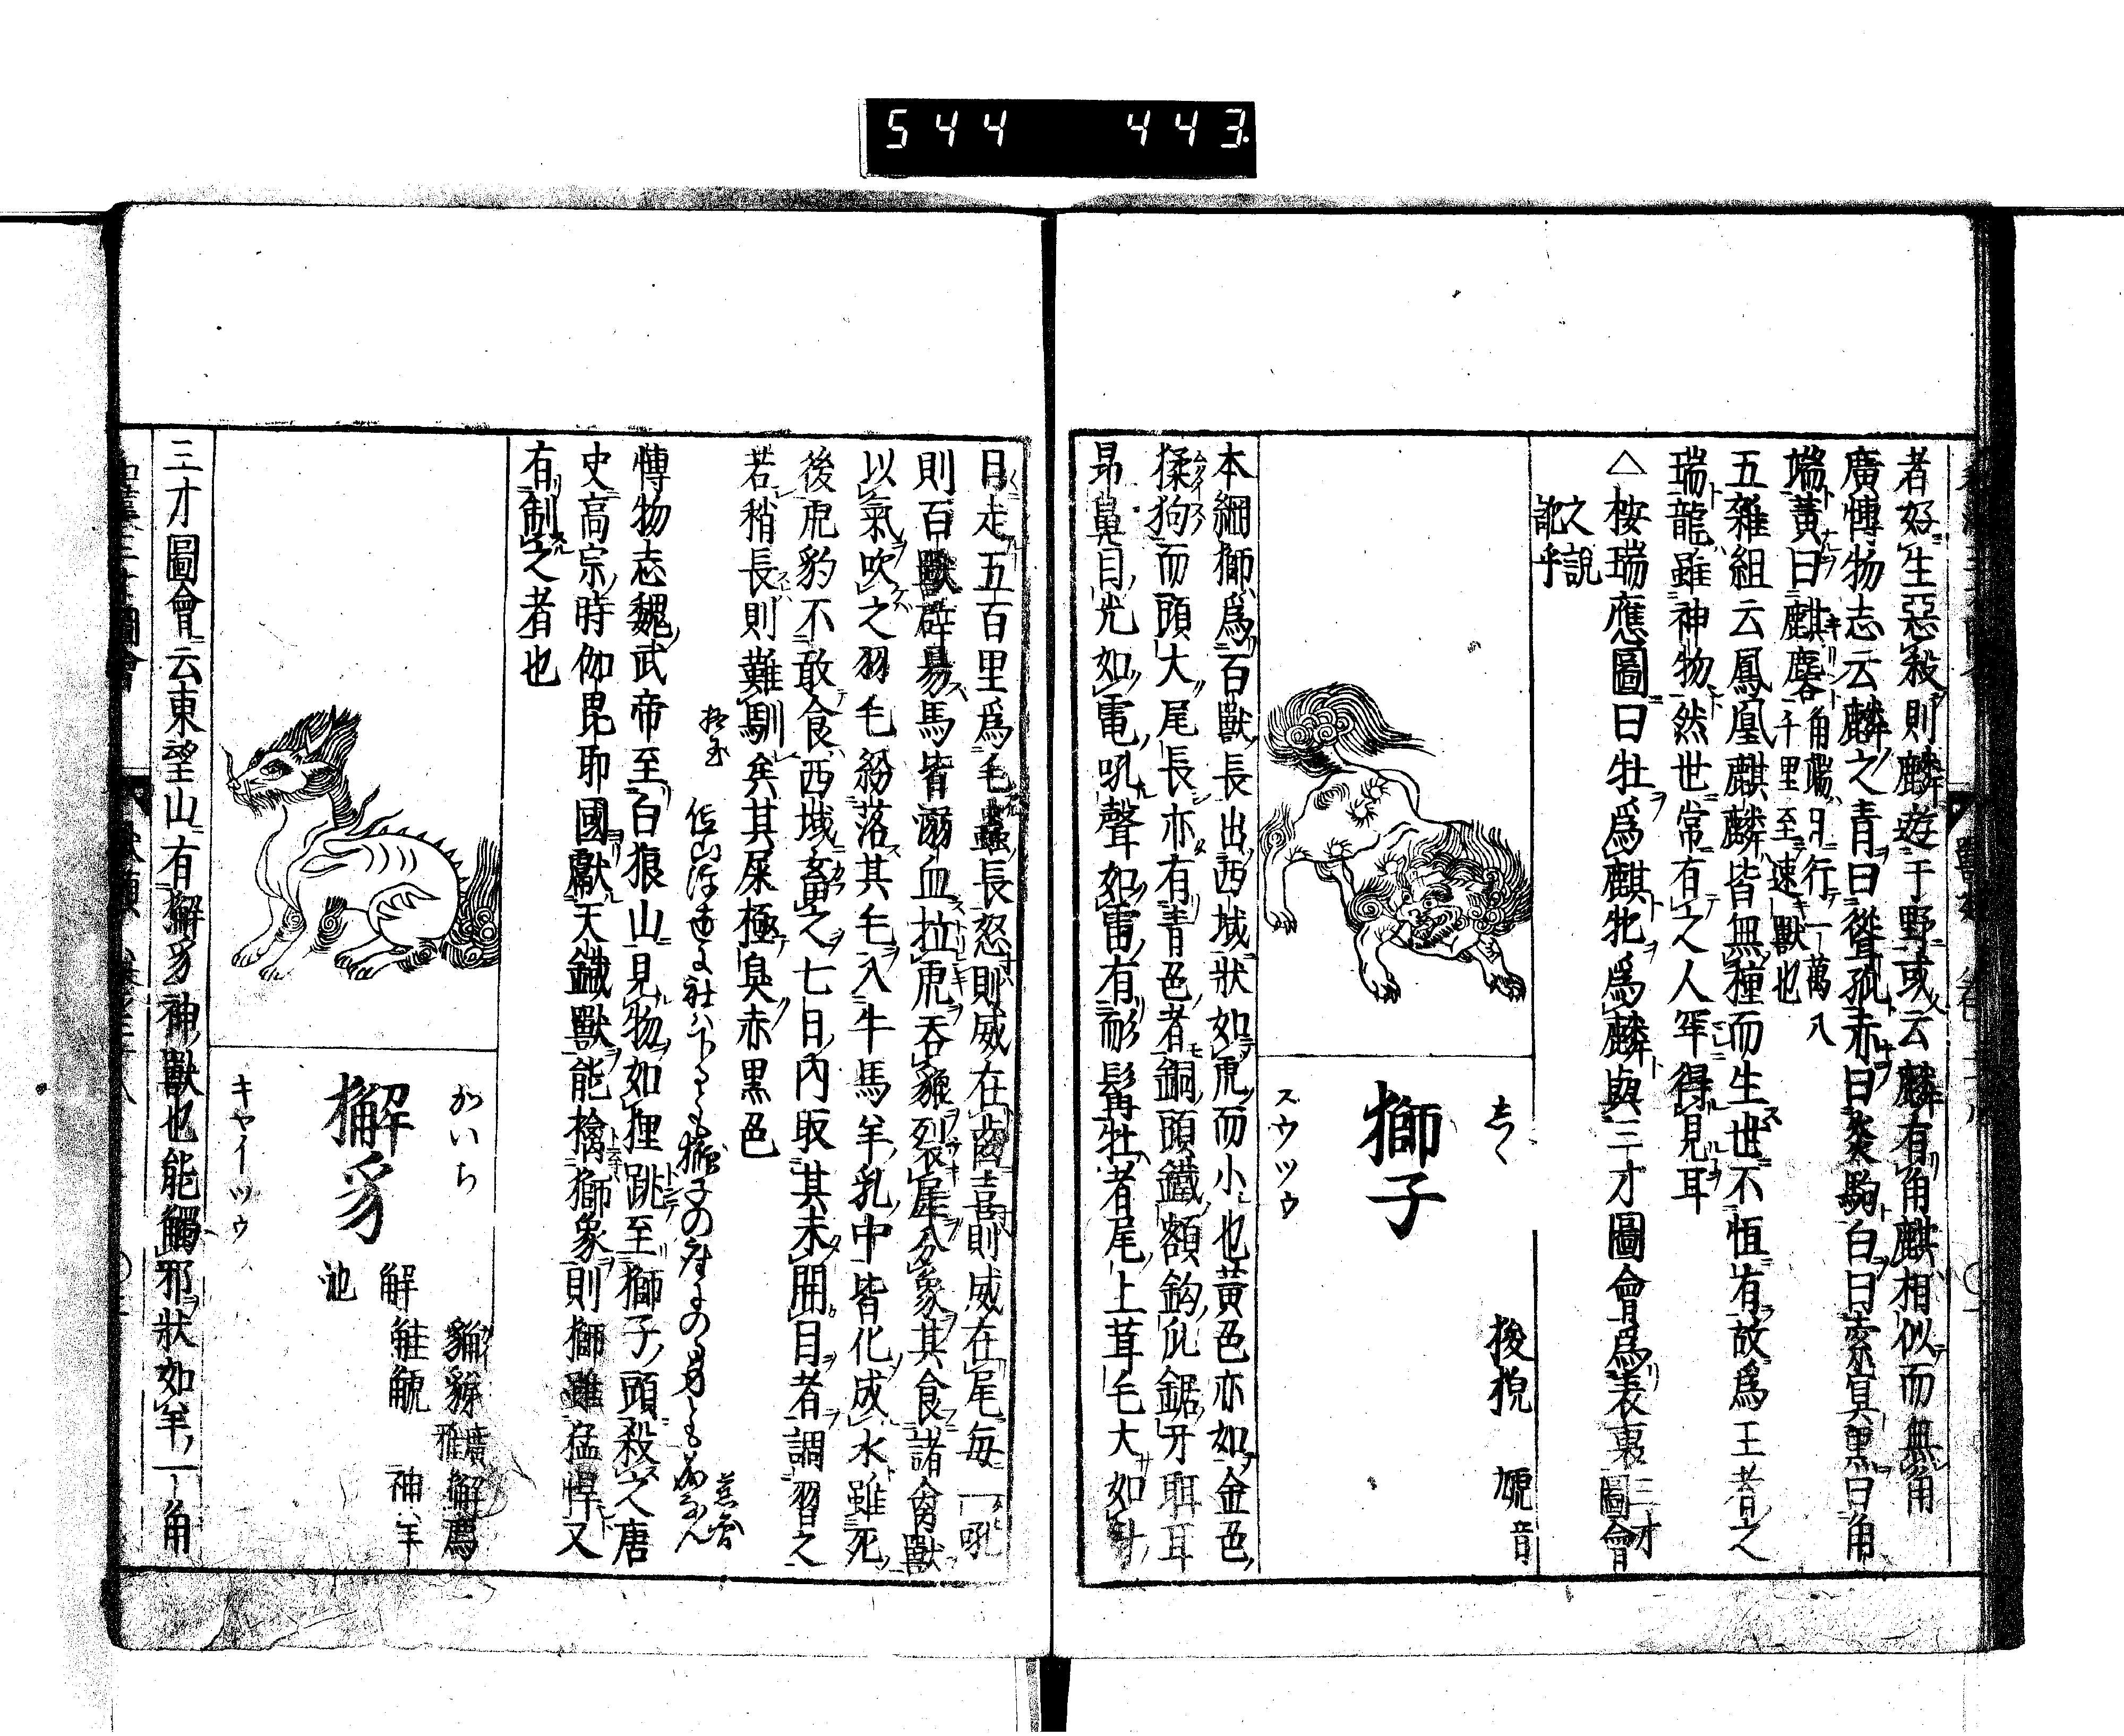 544 443
者好生惡殺則麟遊于野或云麟有角麒相似而無角
廣博物志云麟之青曰聳孤赤曰炎駒白曰索冥黒曰角
端黃曰麒麐 角端日行一萬八
千里至速獸也
五雜組云鳳凰麒麟皆無種而生世不恒有故爲王者之
瑞龍雖神物然世常有之人罕得見耳
△按瑞應圖曰牡爲麒牝爲麟與三才圖會爲表裏 三才
圖會
之說
訛乎
獅子
しゝ
スウツウ
狻猊 虓音
本綱獅爲百獸長出西域狀如虎而小也黃色亦如金色
猱狗而頭大尾長亦有青色者銅頭鐵額鈎爪鋸牙弭耳
昂鼻目光如電吼聲如雷有耏髯牡者尾上茸毛大如斗
日走五百里爲毛蟲長怒則威在齒喜則威在尾每一吼
則百獸辟易馬皆溺血拉虎吞貔裂犀分象其食諸禽獸
以氣吹之羽毛紛落其毛入牛馬羊乳中皆化成水雖死
後虎豹不敢食西域畜之七日內取其未開目者調習之
若稍長則難馴矣其屎極臭赤黒色
博物志魏武帝至白狼山見物如狸跳至獅子頭殺之唐
史高宗時伽毘耶國獻天鐵獸能擒獅象則獅雖猛悍又
有制之者也
獬豸
かいち
キヤイツウ
解廌
神羊
三才圖會云東望山有獬豸神獸也能觸邪狀如羊一角